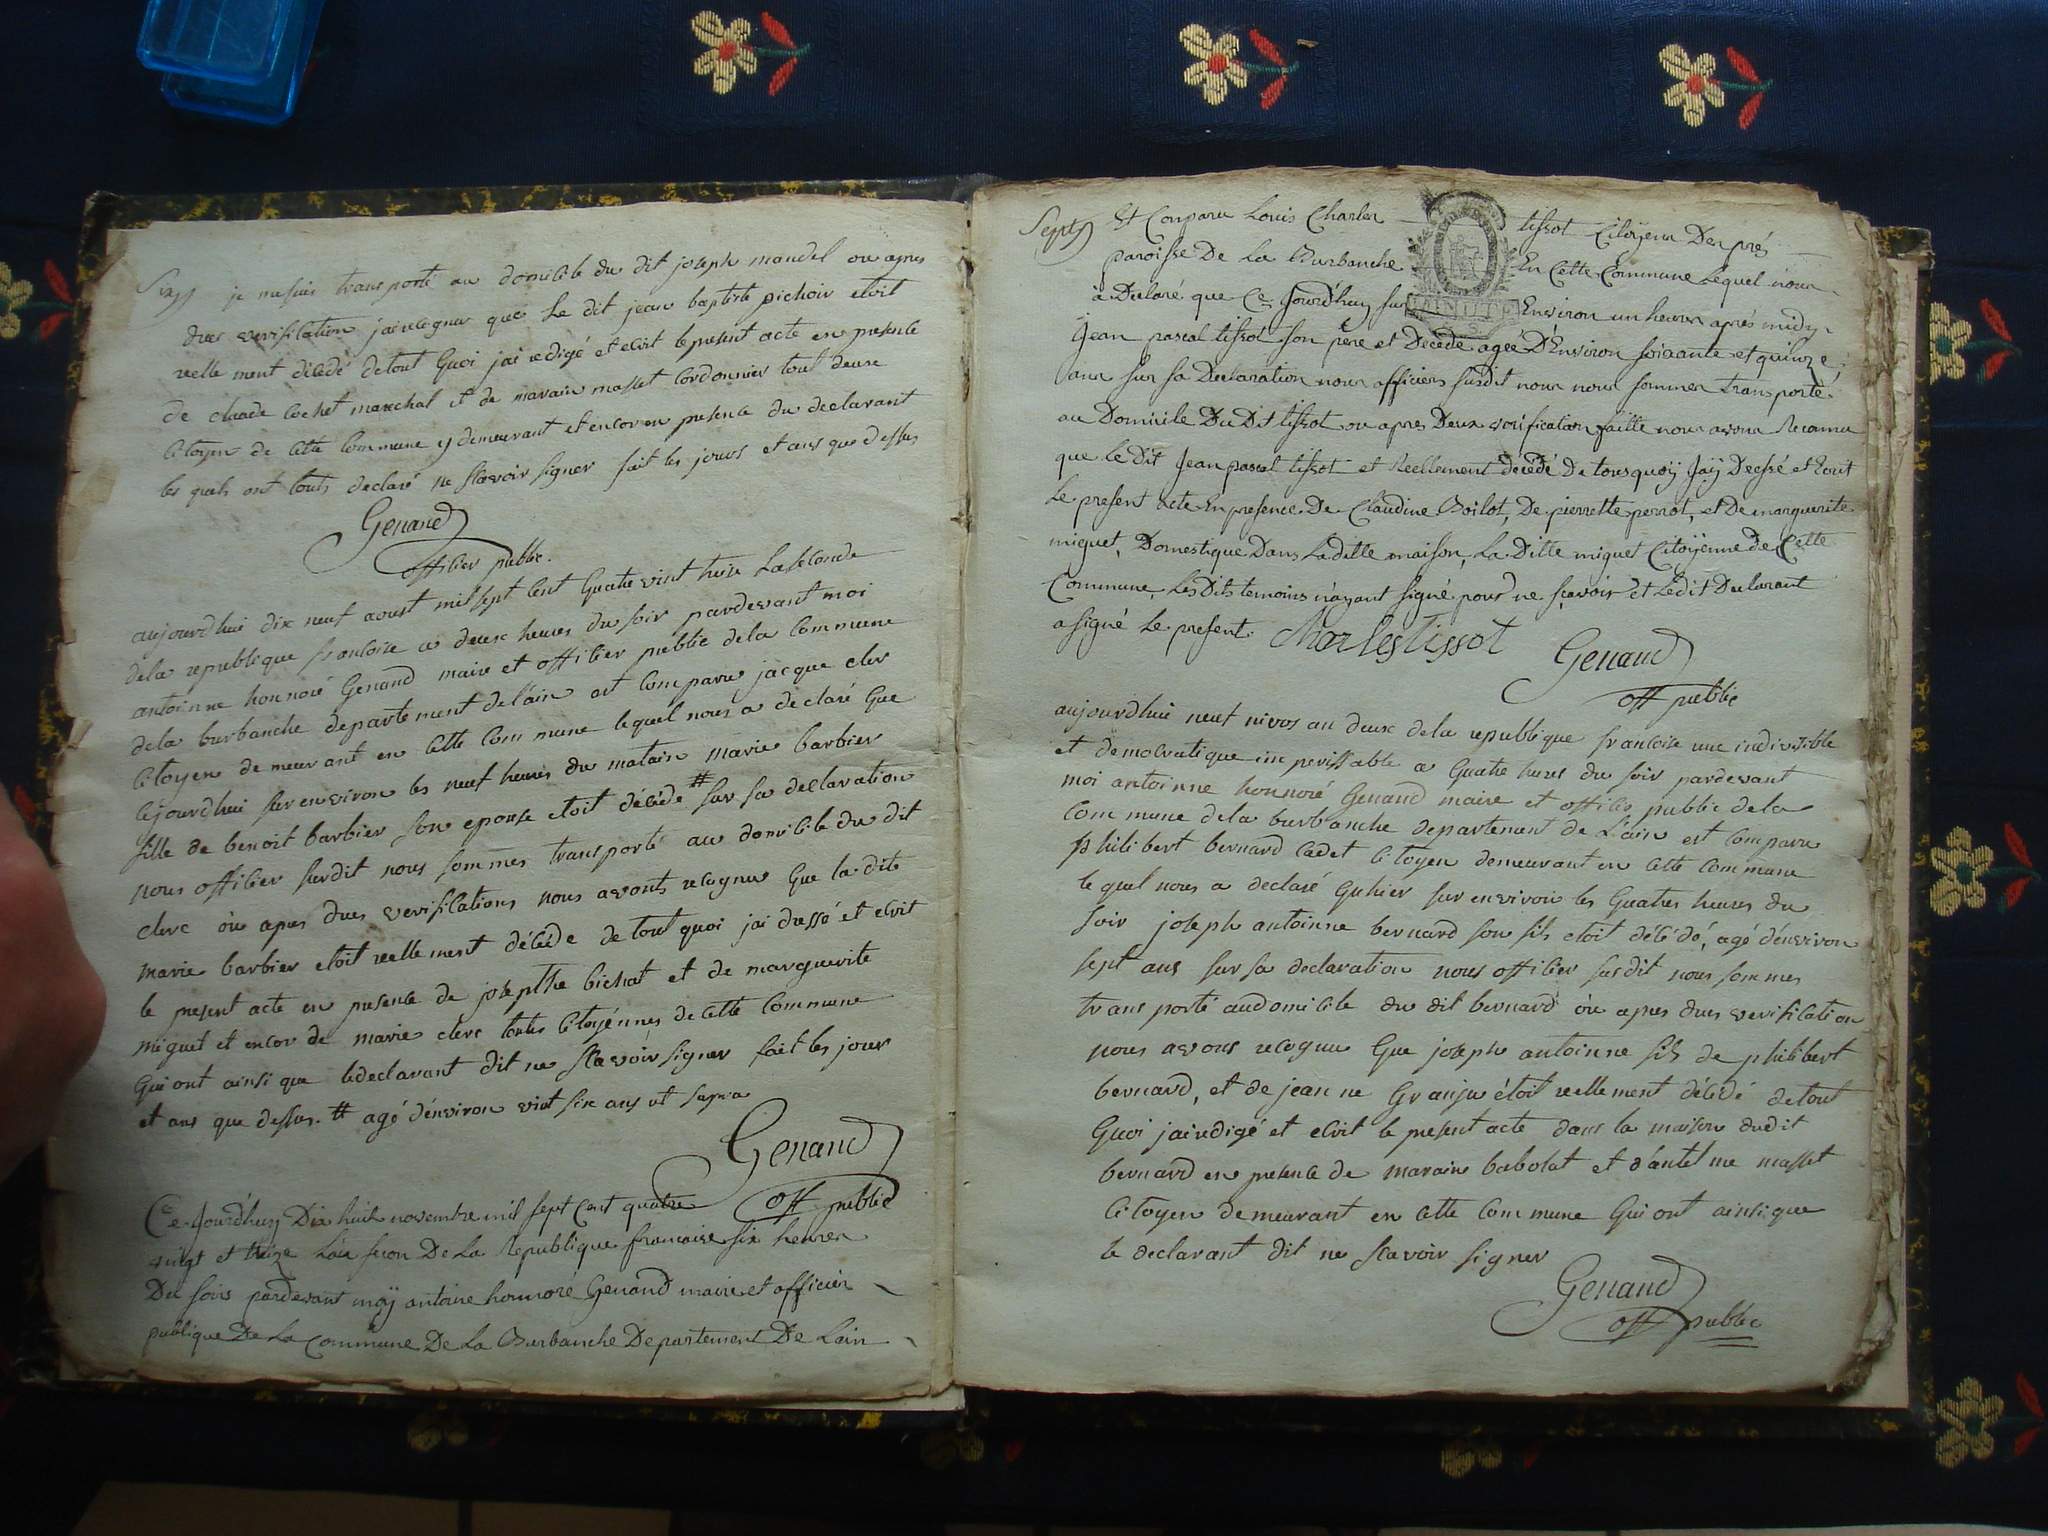 je me suis transporté au domicile du dit joseph mandel ou apres
dues verification jai recognu que le dit jean baptiste pichoir etoit
reelle ment décédé de tout Quoi jai redigé et ecrit le present acte en presence
de claude cochet marechal et de marain masset cordonnier tout deux
citoyen de cette commune y demeurant et encor en presence du declarant
les quels ont touts declaré ne scavoir signer fait les jours et ans que dessus
Genand
officier public.
aujourdhui dix neuf aoust mil sept cent Quatre vint treize La seconde
de la republique francoise a deux heures du soir pardevant moi
antoinne honnoré Genand maire et officier public dela commune
dela burbanche departement de lain est comparu jacque clerc
citoyen demeurant en cette commune lequel nous a declaré que
cejourdhui sur environ les neuf heures du matain marie barbier
fille de benoit barbier son epouse etoit décédé # sur sa declaration
nous officier surdit nous sommes transporté au domicile du dit
clerc òu apres dues verifications nous avonts recognu Que la dite
marie barbier etoit reelle ment décédé de tout quoi jai dressé et ecrit
le present acte en presence de josepthe bichat et de marguerite
miguet et encor de marie clerc toutes citoyénnes de cette commune
Qui ont ainsi que ledeclarant dit ne scavoir signer fait les jour
et ans que dessus. # agé dénviron vint six ans ut supra
Genand
off public
Ce Jourdhuy Dix huit novembre mil sept cent quatre
vingt et treize Lan secon De La Republique francoise six heures
Du soirs pardevant moÿ antoine honnoré Genand maire et officier
publique De La Commune De La Burbanche Departement De Lain
Sept Et Conparu Louis Charles tissot Citoÿen Des prés
paroisse De La Burbanche En Cette Commune Lequel nous
à Declaré que Ce Jourd'huy sur Environ un heures aprés midy
Jean pascal tissot son pére et Décédé agée D'Environ soixante et quinze
ans sur sa Declaration nous officiers susdit nous nous sommes transporté
au Domicile Du Dit tissot ou apres Deux verification faitte nous avons Reconnu
que le Dit Jean pascal tissot et Reellement Décédé De tous quoÿ Jaÿ Dressé et Ecrit
Le present acte En presence De Claudine Boilot, De pierrette perrot, et De marguerite
miguet, Domestique Dans Laditte maison, La Ditte miguet Citoÿenne de Cette
Commune, Les Dits temoins n'ayant signé pour ne sçavoir et Ledit Declarant
a signé Le present. Charles tissot
Genand
off public
aujourdhui neuf nivos an deux dela republique francoise une indivisible
et democratique imperissable a Quatre heures du soir pardevant
moi antoinne honnoré Genand maire et officier public dela
commune dela burbanche departement de Lain est comparu
philibert bernard cadet citoyen demeurant en cette commune
le quel nous a declaré Quhier sur environ les Quatres heures du
soir joseph antoinne bernard son fils etoit décédé, agé dénviron
sept ans sur sa declaration nous officier susdit nous sommes
trans porté audomicile du dit bernard òu apres dues verification
nous avons recognu Que joseph antoinne fils de philibert
bernard, et de jean ne Granju étoit reellement décédé de tout
Quoi jai redigé et ecrit le present acte dans la maison dudit
bernard en presence de marain babolat et d'antelme masset
citoyen demeurant en cette commune Qui ont ainsi que
le declarant dit ne scavoir signer
Genand
off public